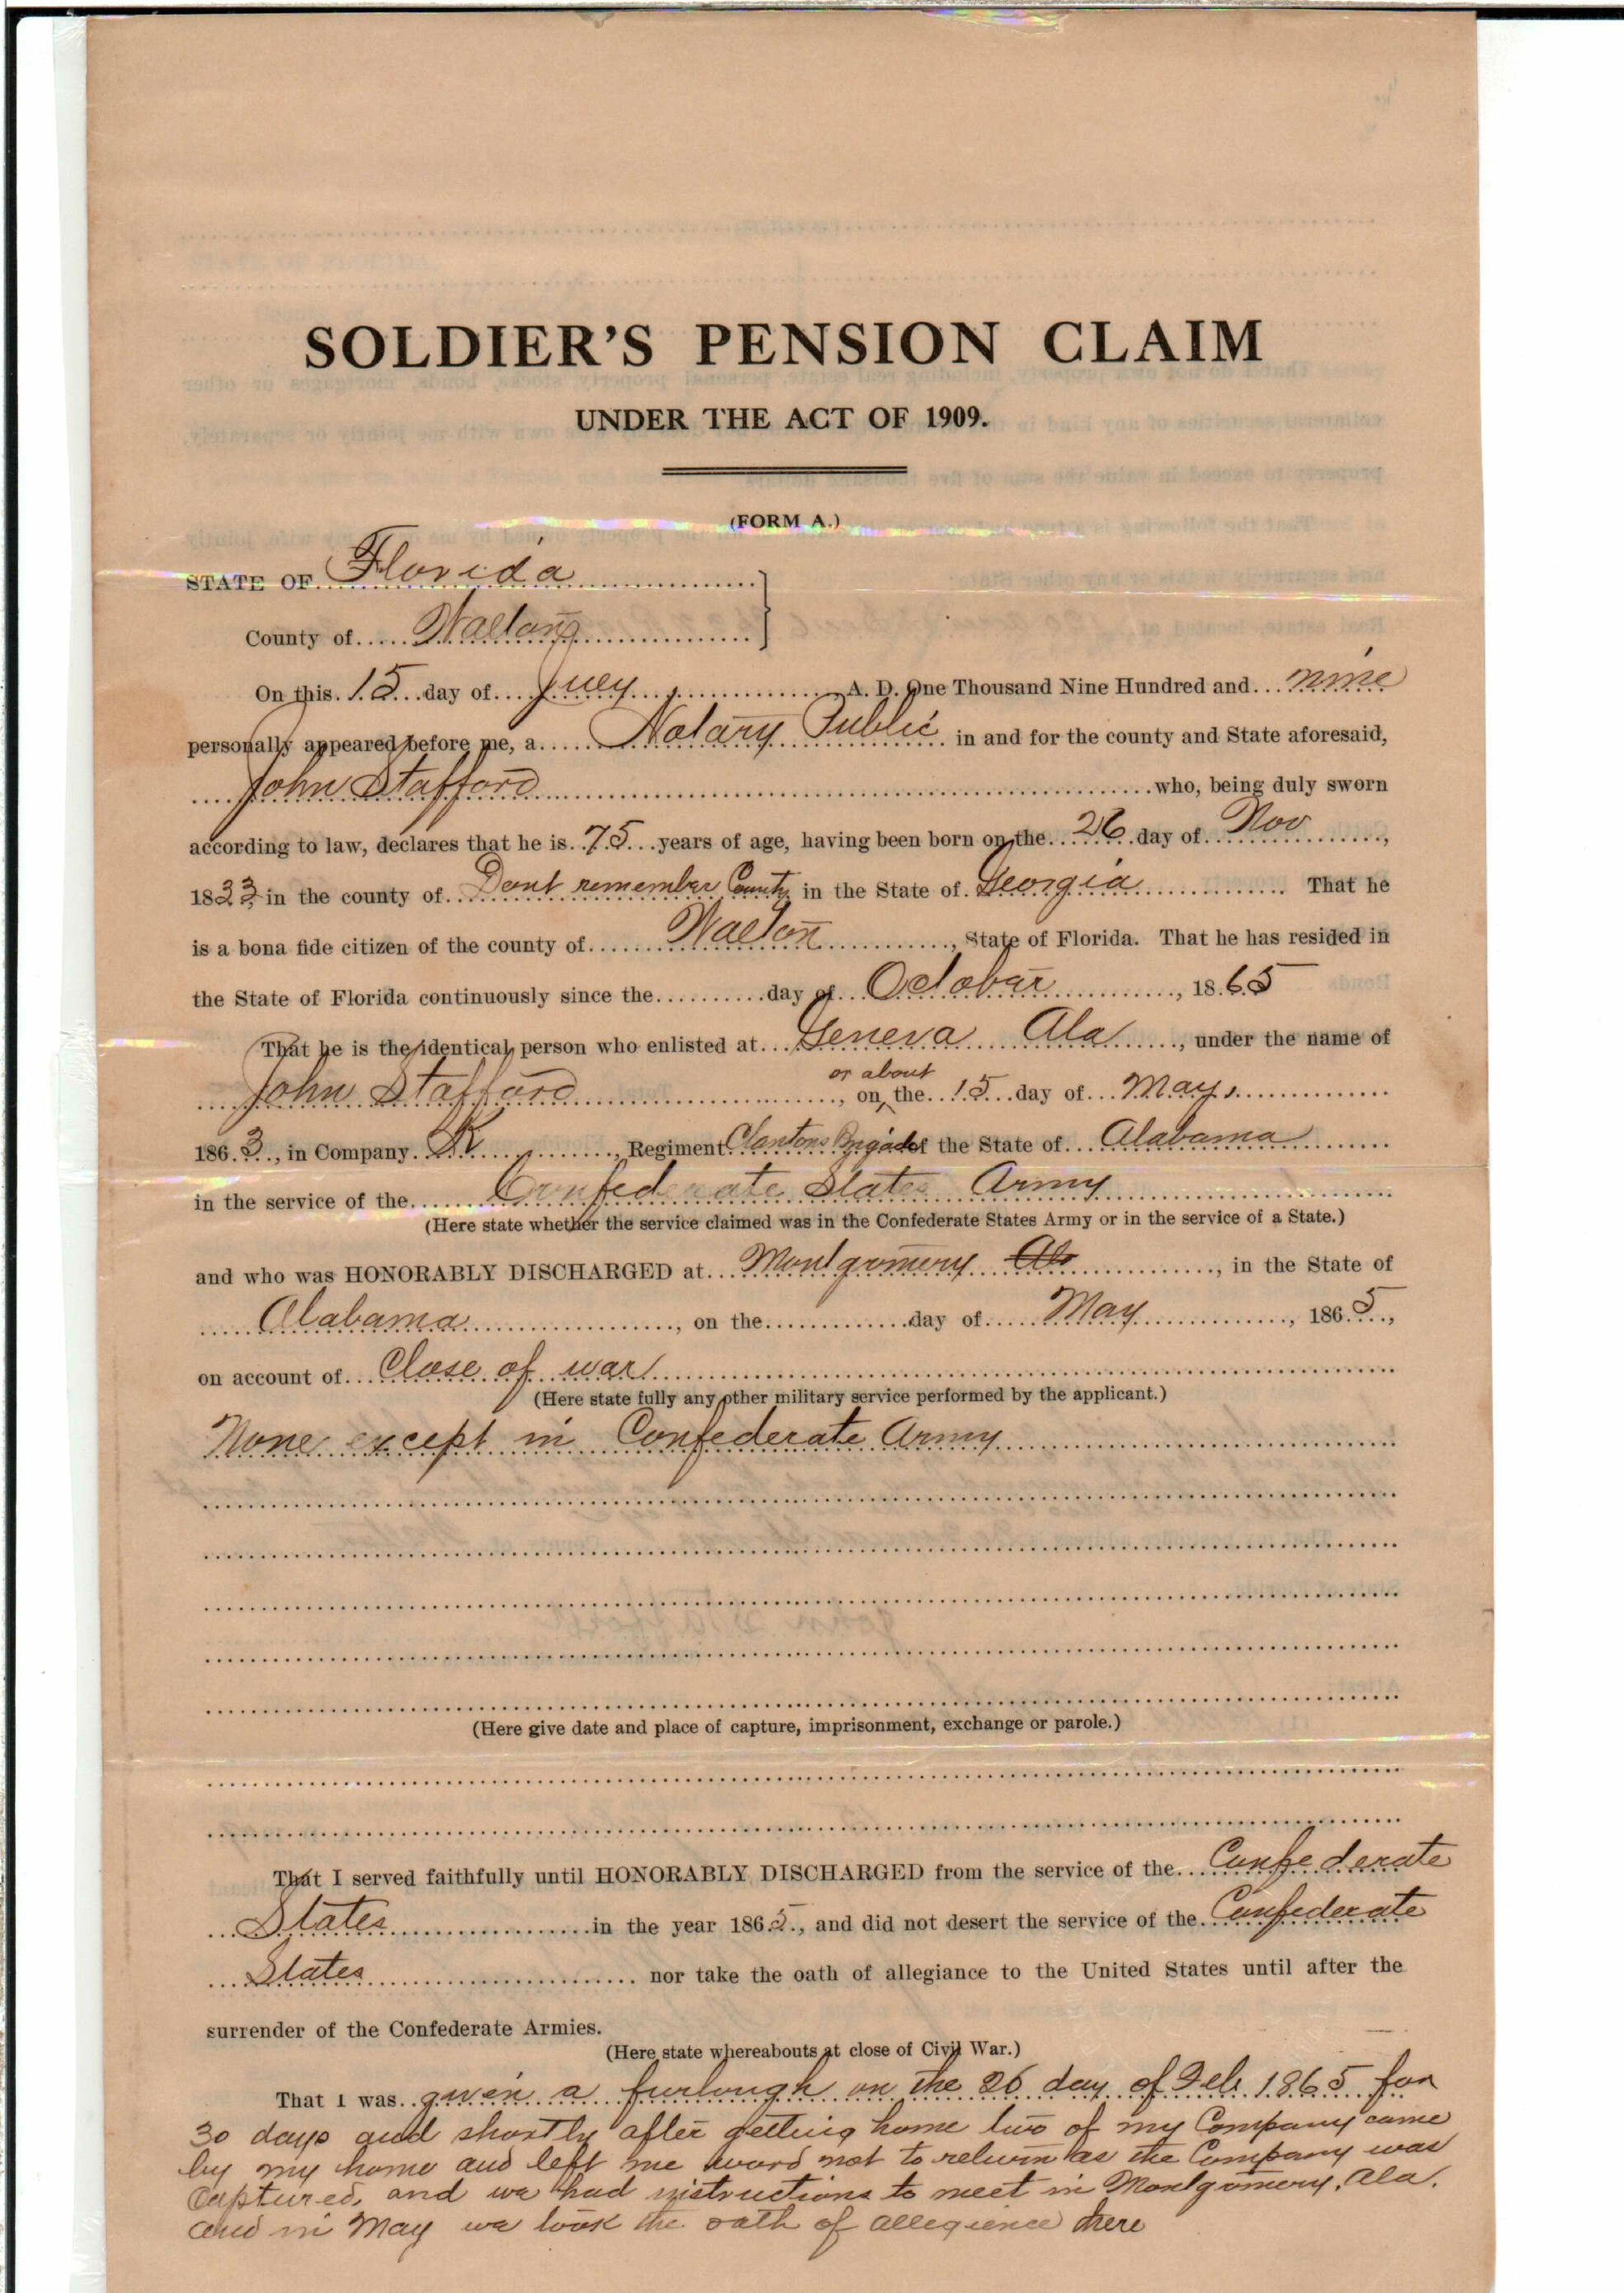 SOLDIER'S PENSION CLAIM
UNDER THE ACT OF 1909.
(FORM A.)
STATE OF Florida
County of Walton
On this 15 day of July A. D. One Thousand Nine Hundred and nine
personally appeared before me, a Notary Public in and for the county and State aforesaid,
John Stafford who, being duly sworn
according to law, declares that he is 75 years of age, having been born on the 26 day of Nov,
1833 in the county of Dont remember County in the State of Georgia. That he
is a bona fide citizen of the county of Walton, State of Florida. That he has resided in
the State of Florida continuously since the day of Octobar, 1865
That he is the identical person who enlisted at Geneva Ala, under the name of
or about
John Stafford, on the 15 day of May
1863, in Company K, Regiment Clantons Brigade of the State of Alabama
in the service of the Confederate States Army
(Here state whether the service claimed was in the Confederate States Army or in the service of a State.)
and who was HONORABLY DISCHARGED at Montgomery Ala, in the State of
Alabama, on the day of May, 1865,
on account of Close of war
(Here state fully any other military service performed by the applicant.)
None except in Confederate Army
(Here give date and place of capture, imprisonment, exchange or parole.)
That I served faithfully until HONORABLY DISCHARGED from the service of the Confederate
States in the year 1865, and did not desert the service of the Confederate
States nor take the oath of allegiance to the United States until after the
surrender of the Confederate Armies.
(Here state whereabouts at close of Civil War.)
That I was given a furlough on the 26 day of Feb. 1865 for
30 days and shortly after getting home two of my Company came
by my home and left me word not to return as the Company was
Captured, and we had instructions to meet in Montgomery, Ala.
and in May we took the oath of allegience there